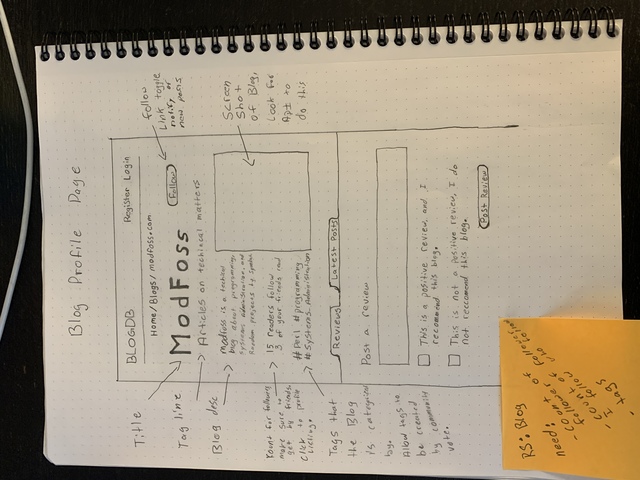 Blog Profile Page
BLOGDB
Register Login
Home/Blogs/modfoss.com
ModFoss
Follow
Articles on technical matters
modfoss is a technical
blog about programming,
systems administration, and
random projects of
15 readers follow
3 of your friends read
#Perl #programming
#Systems.Administration
Reviews
Latest Posts
Post a review
This is a positive review, and I
recommend this blog.
This is not a positive review, I do
not reccomend this blog.
Post Review
Follow
Link toggle
notify of
new posts
Screen
Shot
of Blog,
Look for
API to
do this
Title
Tag line
Blog desc
Count for following,
make sure to
get by friends.
Click to profile
listings.
Tags that
the Blog
is categorized
by.
Allow tags to
be created
by community
vote.
RS: Blog
need:
- Count of
- Count of
follow
- I
tags